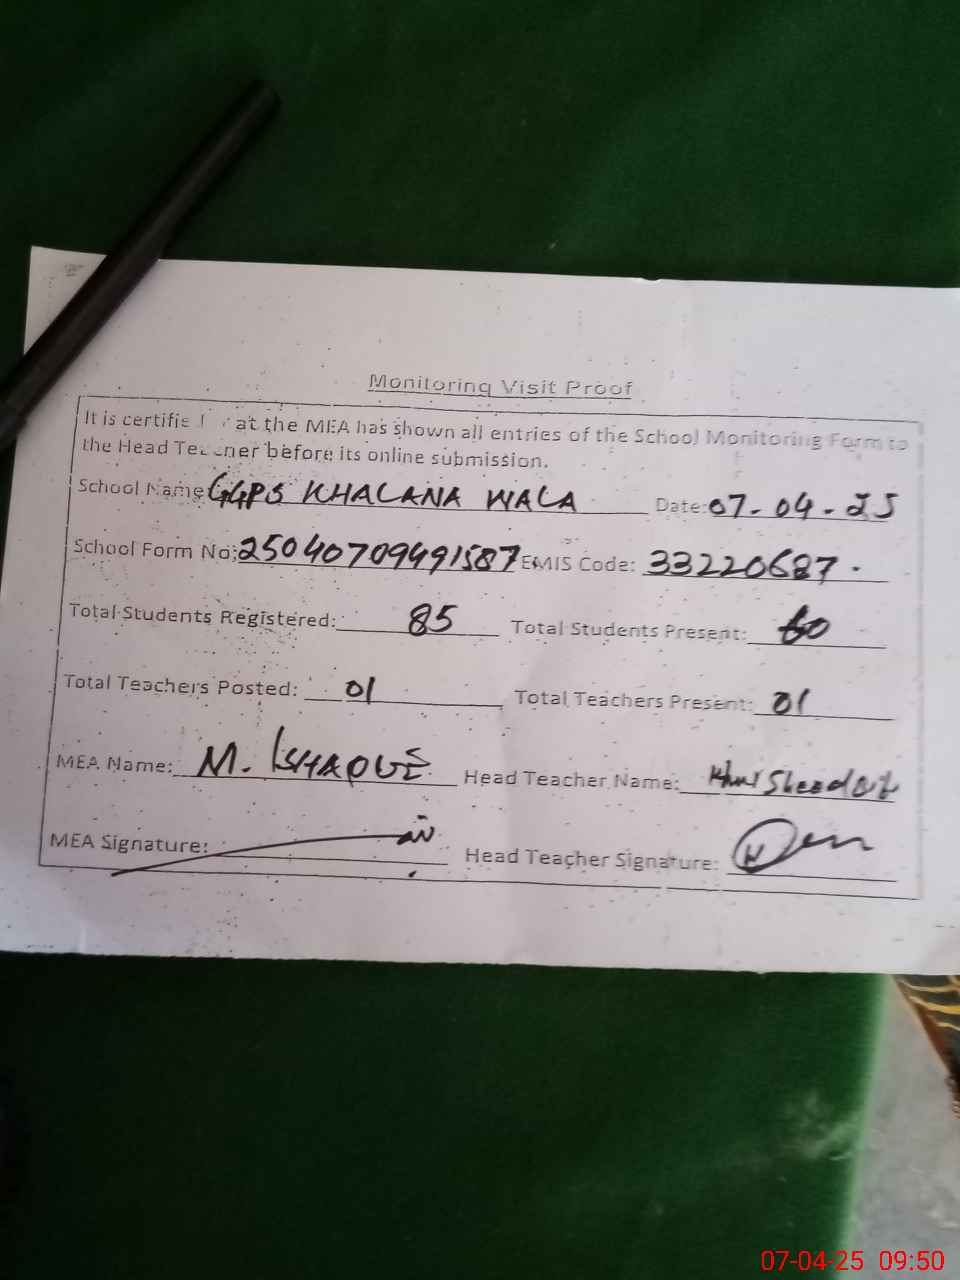 Monitoring Visit Proof
It is certifie at the MEA has shown all entries of the School Monitoring Form to
the Head Teacher before its online submission.
School Name GGPS KHALANA WALA Date: 07-04-25
School Form No; 25040709491587 EMIS Code: 33220687.
Total Students Registered: 85 Total Students Present: 60
Total Teachers Posted: 01 Total Teachers Present: 01
MEA Name: M. ISHAQUE Head Teacher Name: KhurSheed
MEA Signature: Head Teacher Signature:
07-04-25 09:50